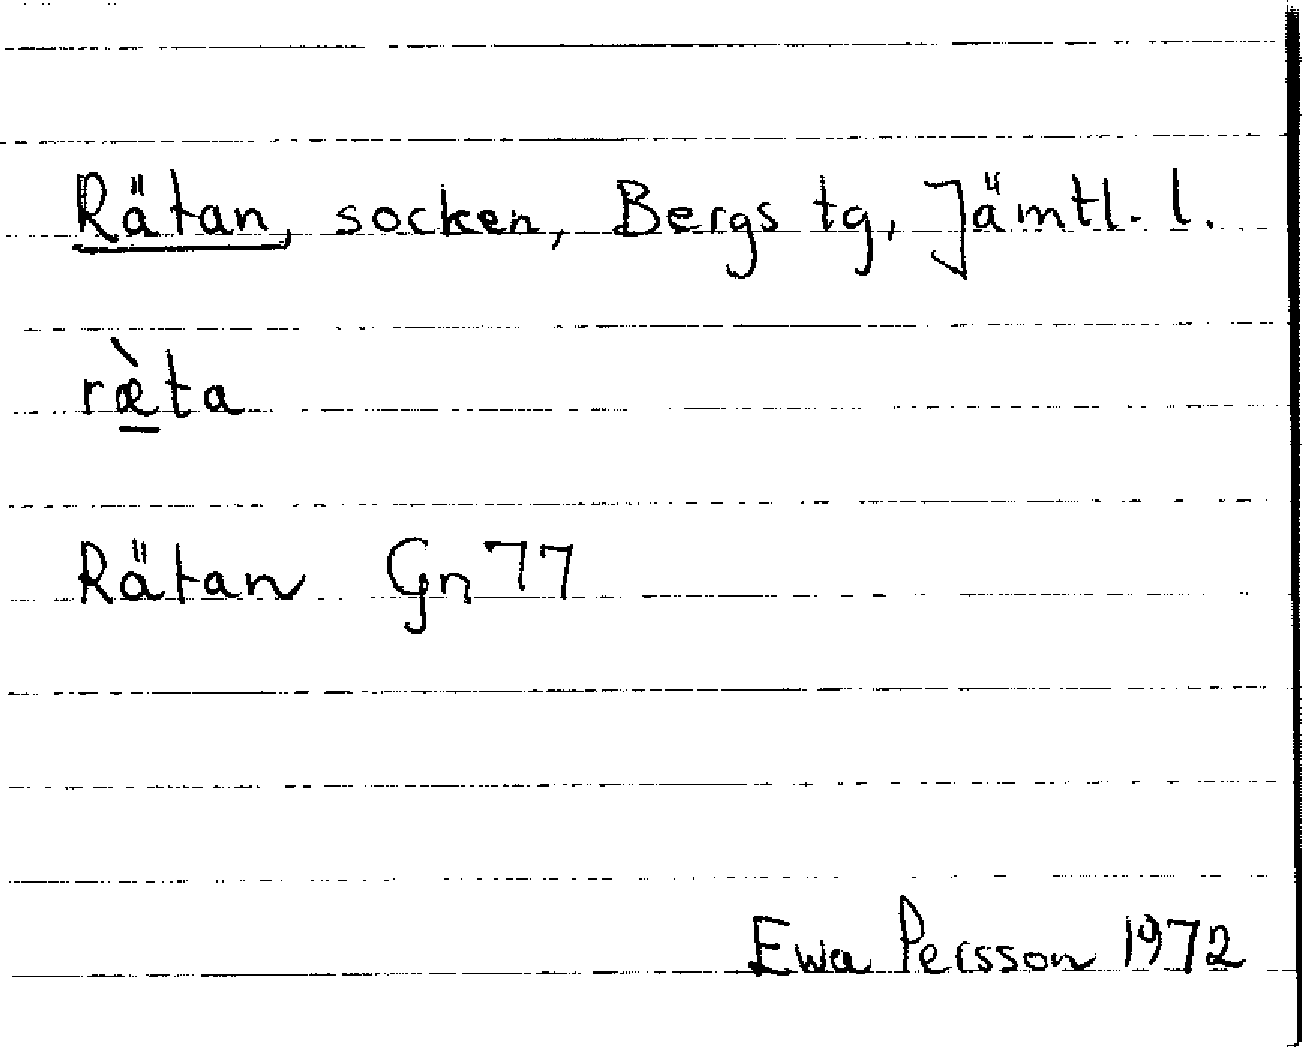 Rätan, socken, Bergs tg, Jämtl. l.
ræ̀ta
Rätan Gn 77
Ewa Persson 1972